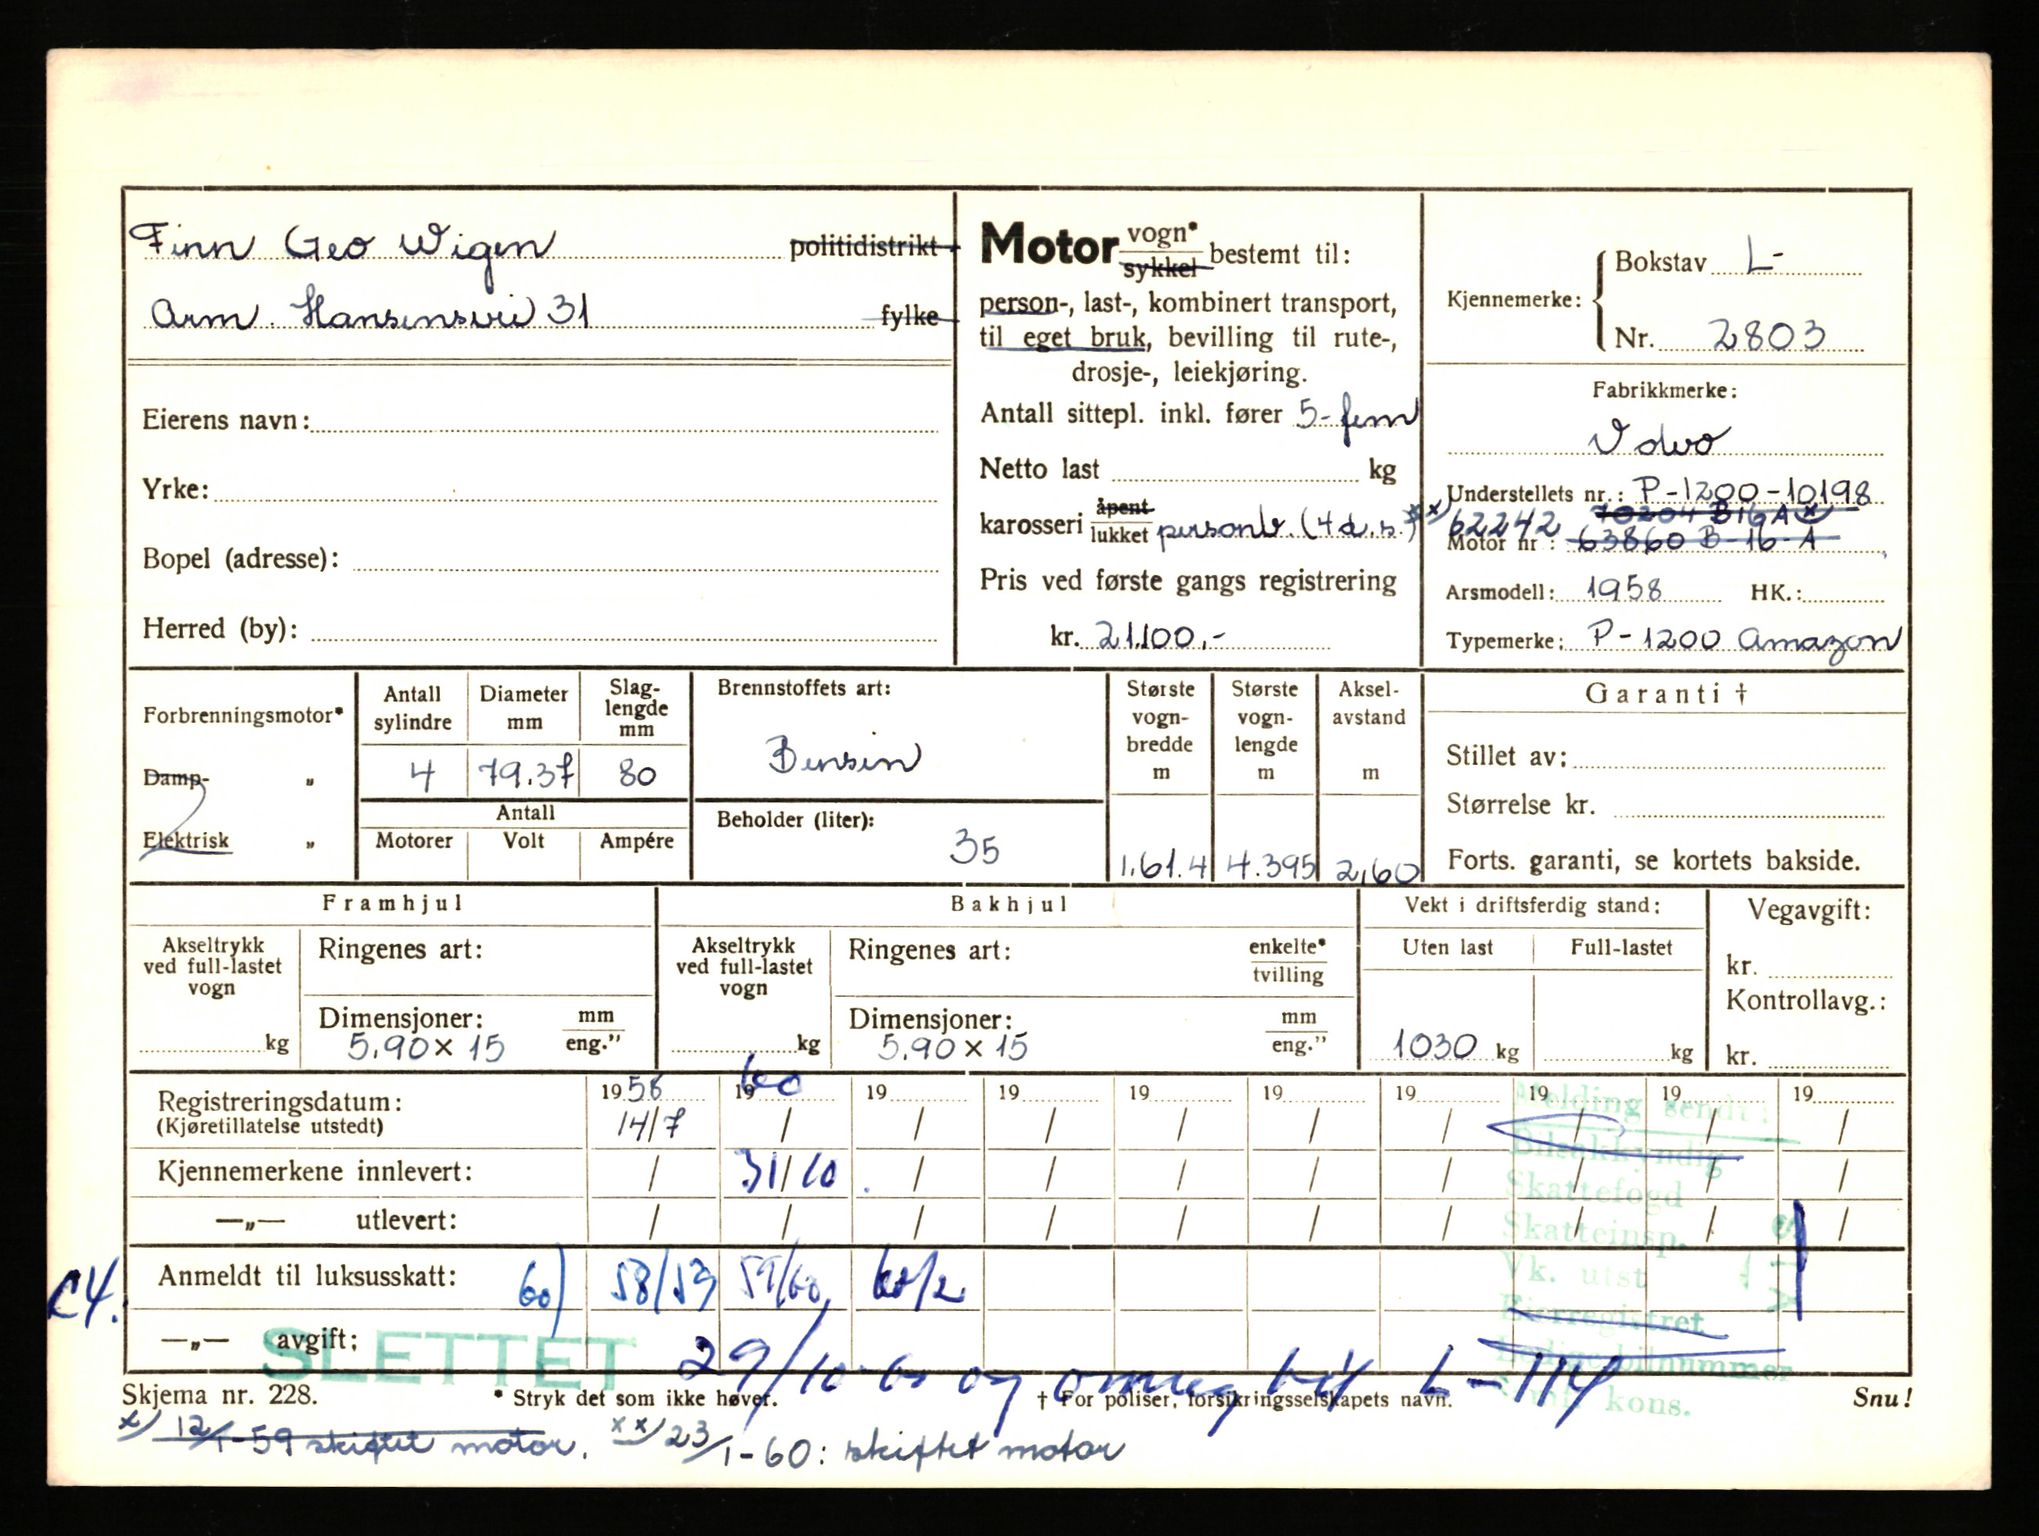 Finn Geo Wigen politidistrikt
Arm. Hansensvei 31 fylke
Eierens navn:
Yrke:
Bopel (adresse):
Herred (by):
Motor vogn* sykkel bestemt til:
person-, last-, kombinert transport,
til eget bruk, bevilling til rute-,
drosje-, leiekjøring.
Antall sittepl. inkl. fører 5- fem
Netto last kg
karosseri åpent lukket personb. (4 d.s.)
Pris ved første gangs registrering
kr. 21.100,-
Kjennemerke: Bokstav L-
Nr. 2803
Fabrikkmerke:
Volvo
Understellets nr.: P-1200-10198
xx) 62242 70204 B16A x
Motor nr : 63860 B-16-A
Arsmodell: 1958 HK.:
Typemerke: P-1200 Amazon
Forbrenningsmotor*
Damp- „
Elektrisk „
Antall sylindre Diameter mm Slag-lengde mm
4 79.37 80
Antall
Motorer Volt Ampére
Brennstoffets art:
Bensin
Beholder (liter):
35
Største vogn-bredde m Største vogn-lengde m Aksel-avstand m
1,61.4 4.395 2,60
Garanti †
Stillet av:
Størrelse kr.
Forts. garanti, se kortets bakside.
Framhjul
Akseltrykk ved full-lastet vogn
kg
Ringenes art:
Dimensjoner: mm eng."
5.90 x 15
Bakhjul
Akseltrykk ved full-lastet vogn
kg
Ringenes art: enkelte* tvilling
Dimensjoner: mm eng."
5.90 x 15
Vekt i driftsferdig stand:
Uten last Full-lastet
1030 kg kg
Vegavgift:
kr.
Kontrollavg.:
kr.
Registreringsdatum: 1958 1960 19 19 19 19 19 19 19 19
(Kjøretillatelse utstedt) 14/7 / / / / / / / / /
Kjennemerkene innlevert: / 31/10 / / / / / / / /
—„— utlevert: / / / / / / / / / /
Anmeldt til luksusskatt: 60) 58/53 59/60, 60/2
C4.
—„— avgift:
SLETTET 29/10-60 og omreg til L-114
Melding sendt:
Bilsakkyndig
Skattefogd
Skatteinsp.
Vk. utst
Eierregistret
Ledige bilnummer
kons.
Skjema nr. 228. * Stryk det som ikke høver. † For poliser, forsikringsselskapets navn. Snu!
x) 12/1-59 skiftet motor. xx) 23/1-60: skiftet motor